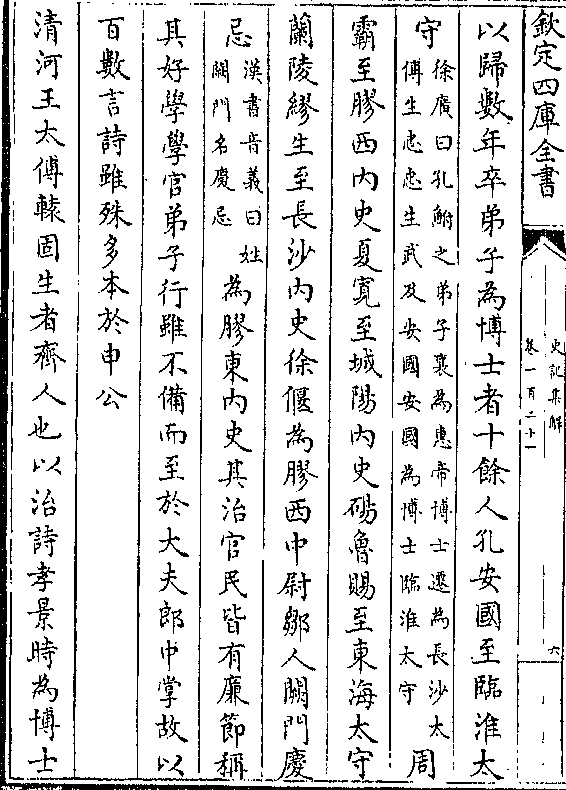 欽定四庫全書
史記集解
卷一百二十一
六
以歸數年卒弟子為博士者十餘人孔安國至臨淮太
守
徐廣曰孔鮒之弟子襄為惠帝博士遷為長沙太
傅生忠忠生武及安國安國為博士臨淮太守
周
霸至膠西内史夏寛至城陽内史碭魯賜至東海太守
蘭陵繆生至長沙内史徐偃為膠西中尉鄒人闕門慶
忌
漢書音義曰姓
闕門名慶忌
為膠東内史其治官民皆有廉節稱
其好學學官弟子行雖不備而至於大夫郎中掌故以
百數言詩雖殊多本於申公
清河王太傅轅固生者齊人也以治詩孝景時為博士